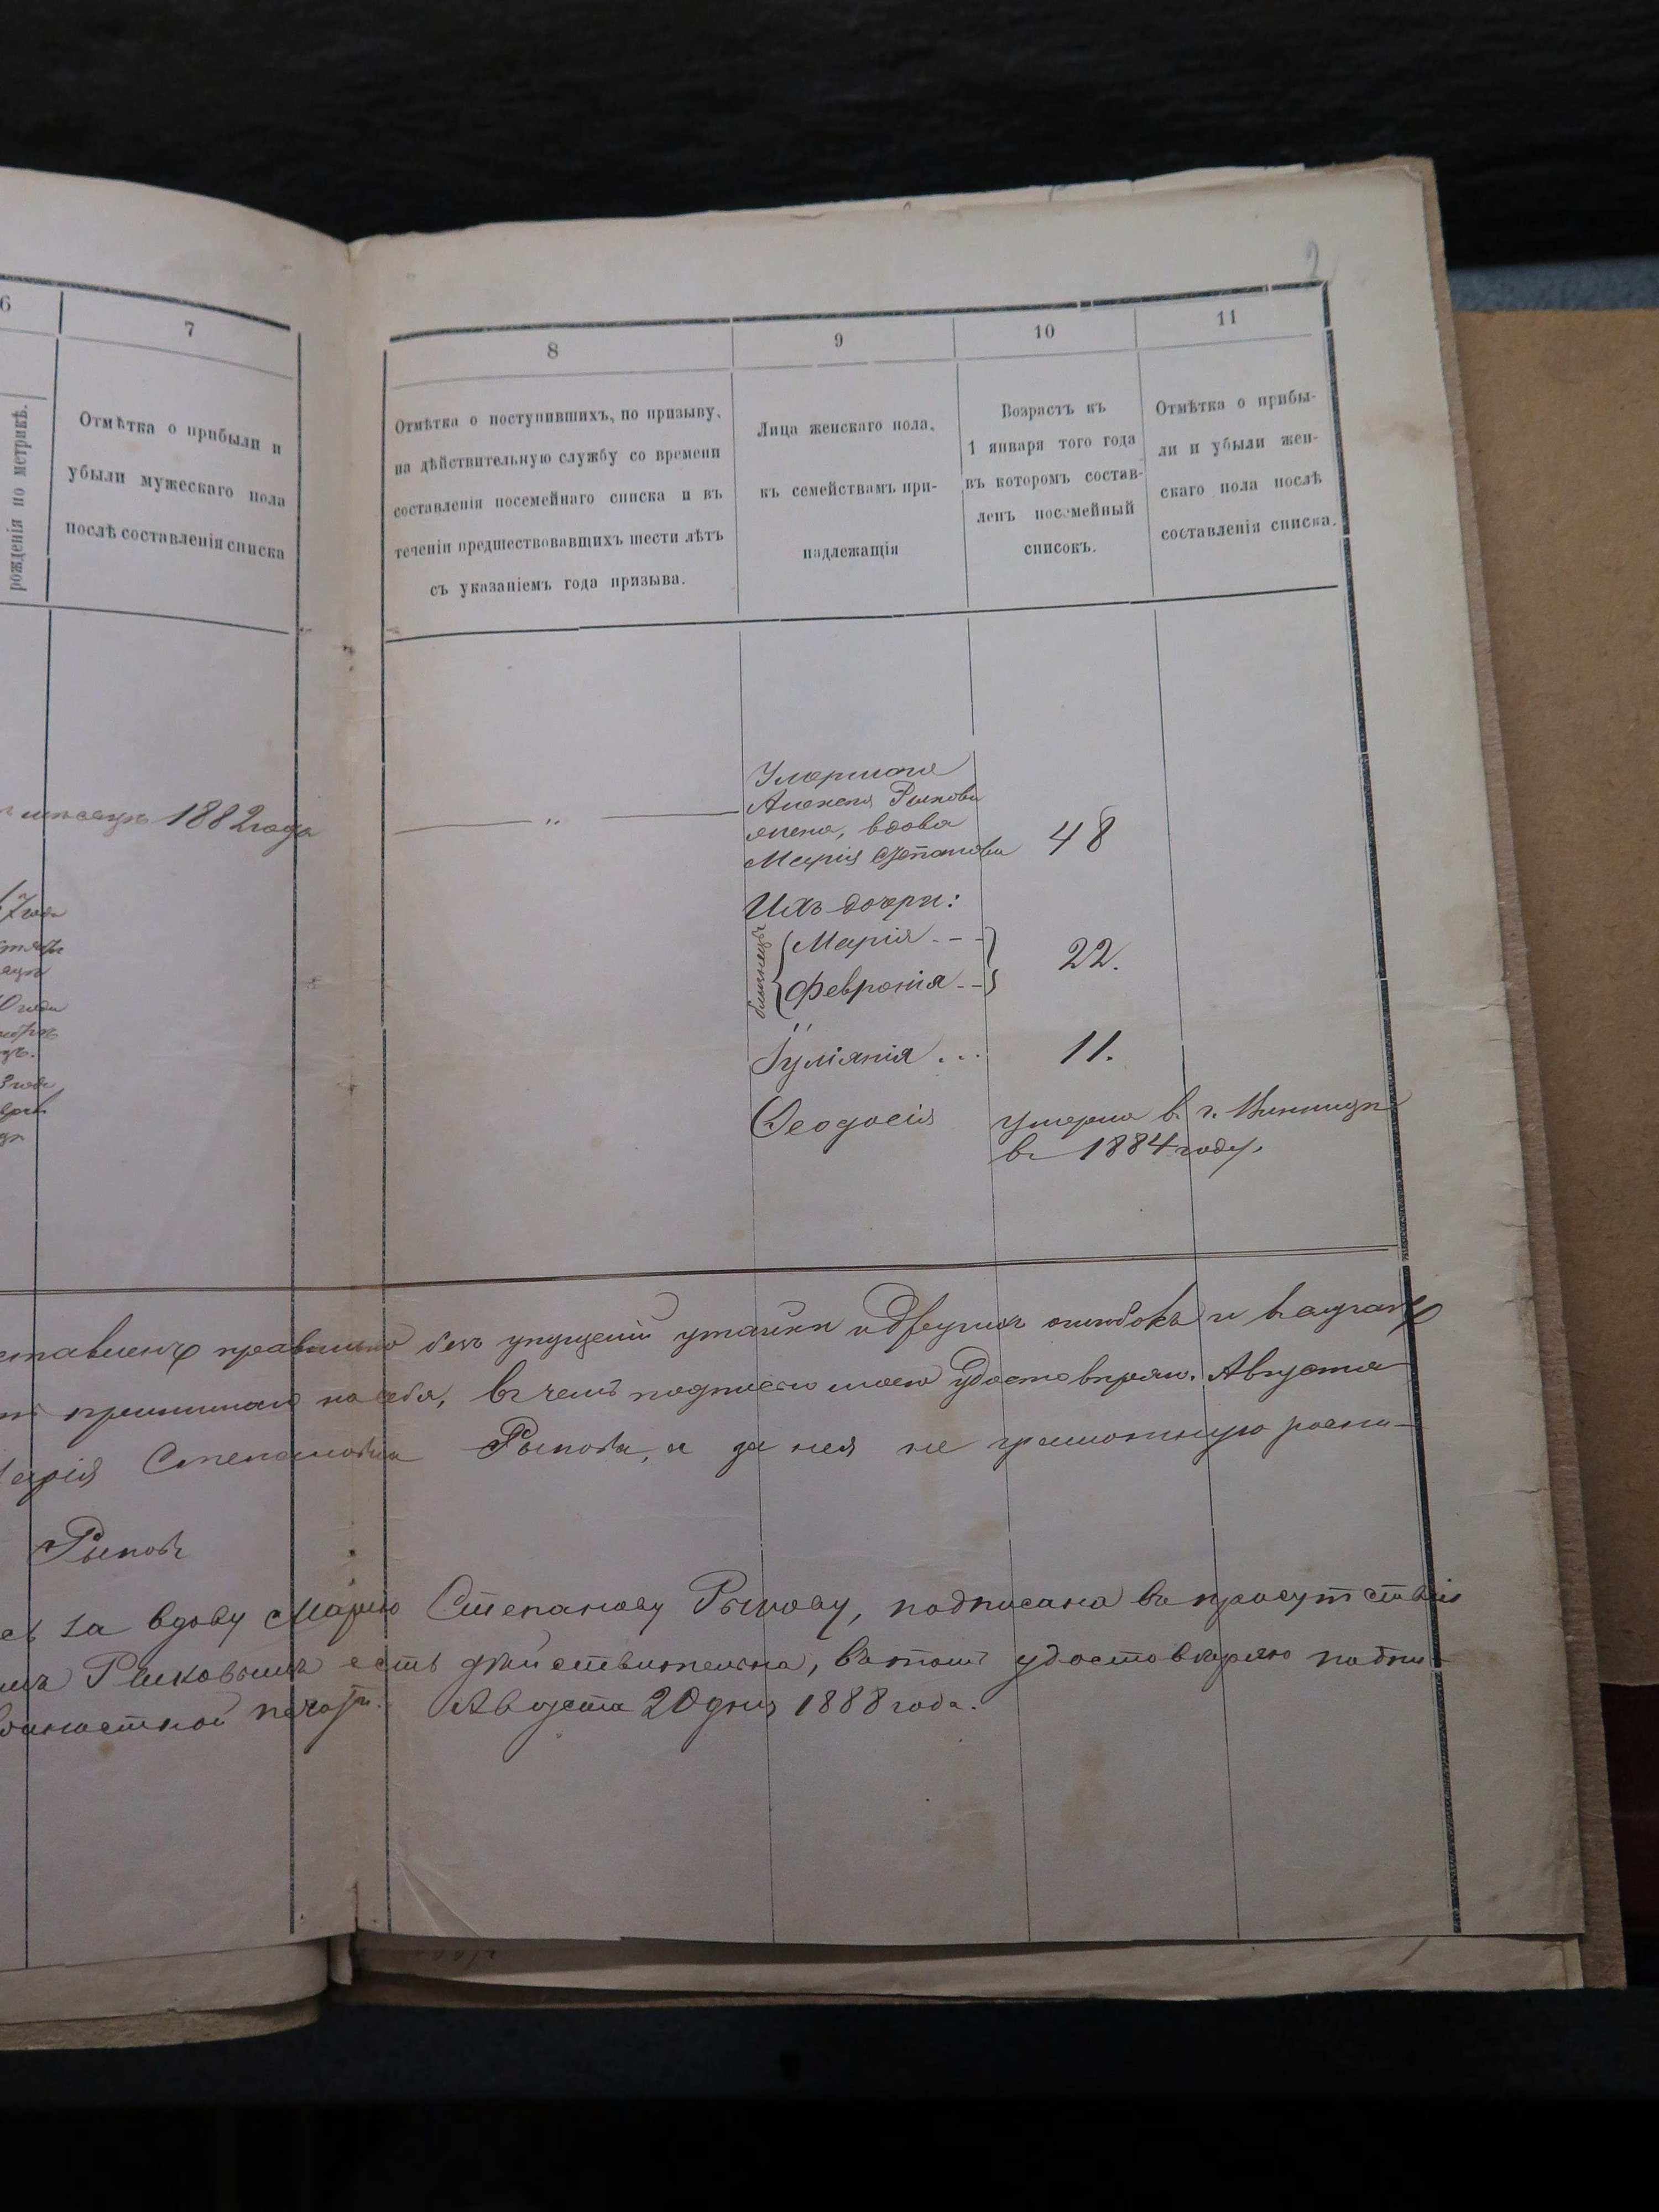 2
6
7
8
9
10
11
рожденія по метрикѣ.
Отмѣтка о прибыли и
убыли мужескаго пола
послѣ составленія списка
Отмѣтка о поступившихъ, по призыву,
на дѣйствительную службу со времени
составленія посемейнаго списка и въ
теченіи предшествовавшихъ шести лѣтъ
съ указаніемъ года призыва.
Лица женскаго пола,
къ семействамъ при-
надлежащія
Возрастъ къ
1 января того года
въ которомъ состав-
ленъ посемейный
списокъ.
Отмѣтка о прибы-
ли и убыли жен-
скаго пола послѣ
составленія списка.
1882 года
Умершаго
Алексея Рыкова
жена, вдова
Марія Степанова 48
Ихъ дочри:
близнецы
Марія
Февронія
22.
Іуліянія ... 11.
Ѳеодосія умерла въ г. Винницѣ
въ 1884 году.
правильно безъ упущеній утайки и другихъ ошибокъ и
принимаю на себя, въ чемъ подписью моею удостовѣряю. Августа
Степановна Рыкова, а за нея не грамотную роспи-
Рыковъ
за вдову Марію Степанову Рыкову, подписана въ присутствіи
Рыковымъ есть дѣйствительна, въ томъ удостовѣряю подпи-
печати. Августа 20 дня 1888 года.